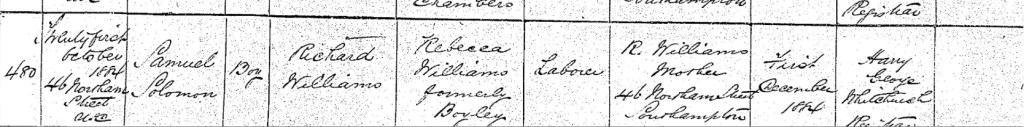 Chambers
Southampton
Registrar
480
Twenty first
October
1884
46 Northam
Street
Samuel
Solomon
Boy
Richard
Williams
Rebecca
Williams
formerly
Boyley
Laborer
R. Williams
Mother
46 Northam Street
Southampton
First
December
1884
Harry
George
Whitchurch
Registrar